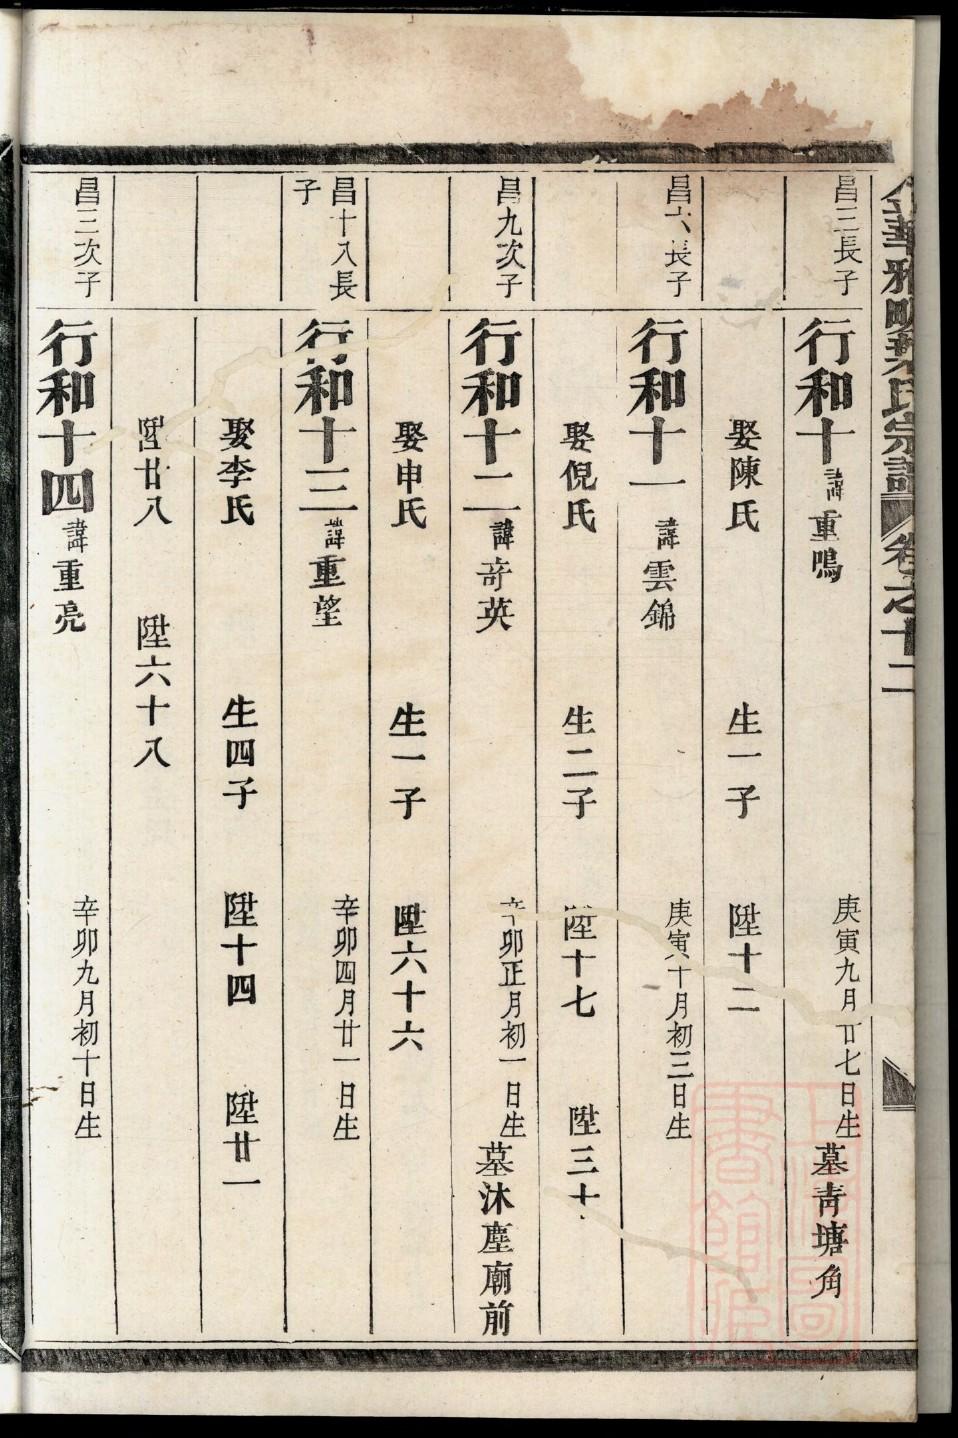 金華雅畈葉氏宗譜 卷之十二
昌三長子 行和十 諱重鳴 庚寅九月廿七日生 墓青塘角
娶陳氏 生一子 陞十二
昌六長子 行和十一 諱雲錦 庚寅十月初三日生
娶倪氏 生二子 陞十七 陞三十
昌九次子 行和十二 諱奇英 辛卯正月初一日生 墓沐塵廟前
娶申氏 生一子 陞六十六
昌十八長子 行和十三 諱重望 辛卯四月廿一日生
娶李氏 生四子 陞十四 陞廿一
陞廿八 陞六十八
昌三次子 行和十四 諱重亮 辛卯九月初十日生